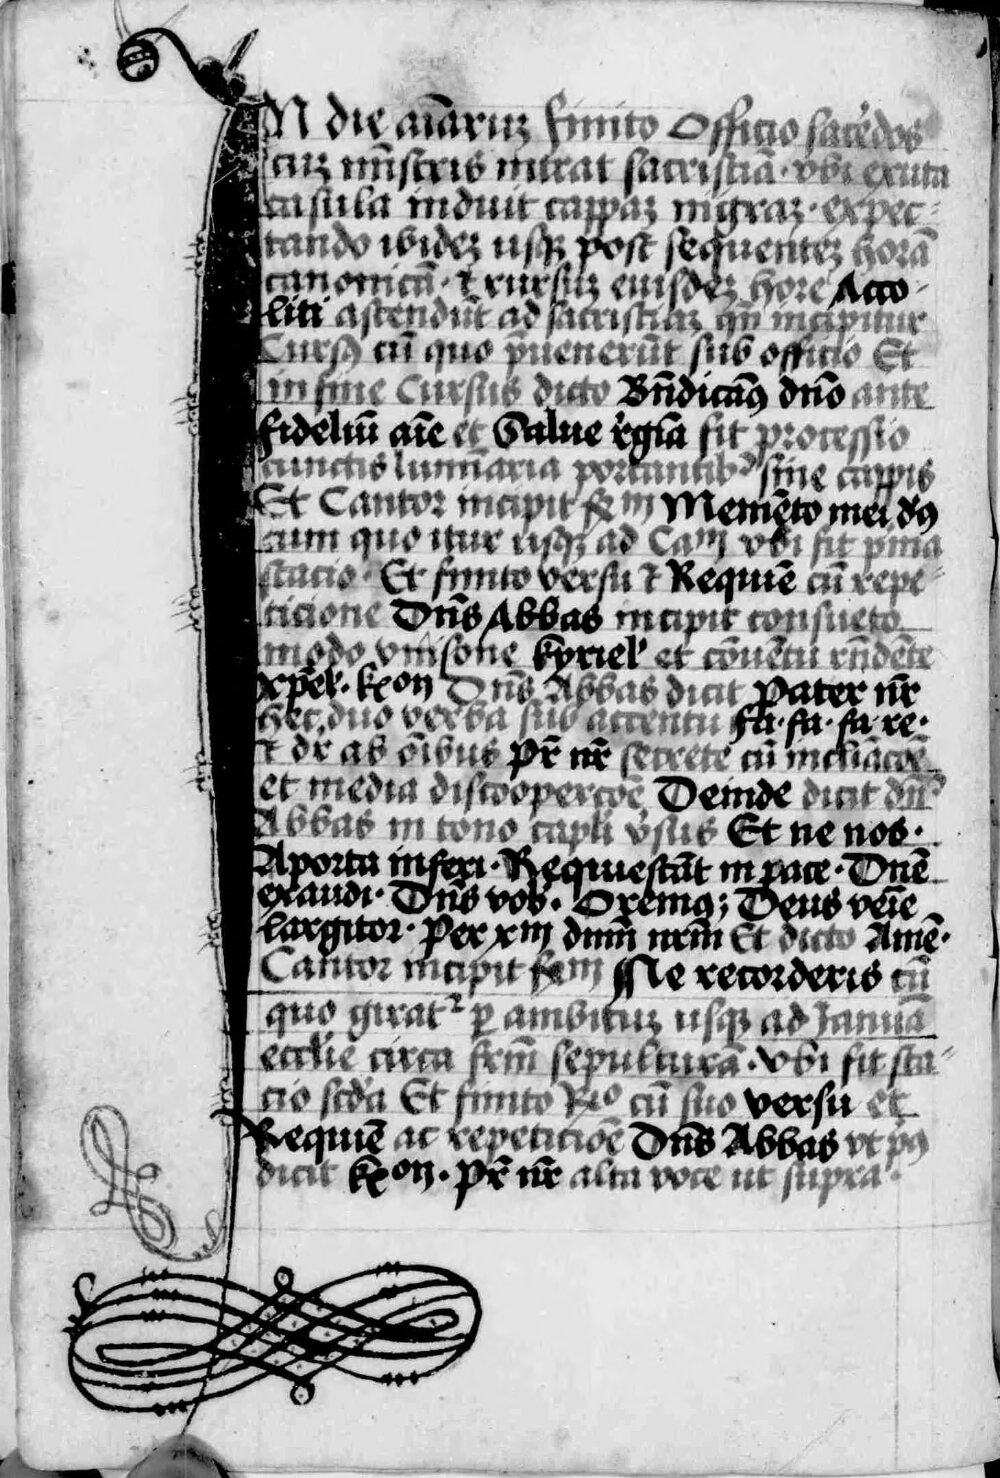 IN die aīarꝫ finito Officio sac̄dos
cuꝫ mīstris intrat sacristiā · vbi exuta
casula induit cappaꝫ nigraꝫ · expec-
tando ibideꝫ usqꝫ post sequenteꝫ horā
canonicā · ⁊ rursuꝫ eiusdeꝫ hore Acco-
liti ascendūt ad sacristiaꝫ qn̄ incipitur
Cursꝰ cū quo p̄uenerūt sub officio Et
in fine Cursus dicto Bn̄dicamꝰ dn̄o ante
fideliū aīe et Salue r̄gīa fit processio
cunctis lumīaria portantibꝰ sine cappis
Et Cantor incipit Memēto mei dꝰs
cum quo itur usqꝫ ad vbi fit pīna
stacio · Et finito versu ⁊ Requiē cū repe-
ticione Dn̄s Abbas incipit consueto
modo vnisone kyriel' et cōuētu rn̄dēte
xp̄el'. kꝫon Dn̄s Abbas dicit Pater nr̄
hec duo verba sub accentu fa · fa · fa · re ·
⁊ dr̄ ab oībus Pr̄ nr̄ secrete cū inclīacoē
et media discoopercōe Deinde dicit dn̄s
Abbas in tono capl'i v̄sus Et ne nos ·
A porta inferi · Requiescāt in pace · Dn̄e
exaudi · Dn̄s vob. · Oremꝰ; Deus veīe
largitor · Per xm̄ dnm̄ nrm̄ Et dicto Amē ·
Cantor incipit Ne recorderis cū
quo girat² ꝑ ambituꝫ usqꝫ ad Januā
eccl'ie circa sepulturā · vbi fit sta-
cio scd'a Et finito R̄io cū suo versu et
Requiē ac repeticiōe Dn̄s Abbas vt pꝰ
dicit kꝫon · Pr̄ nr̄ alta voce ut supra ·